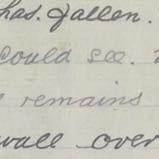 has. fallen.
could see.
remains
wall over